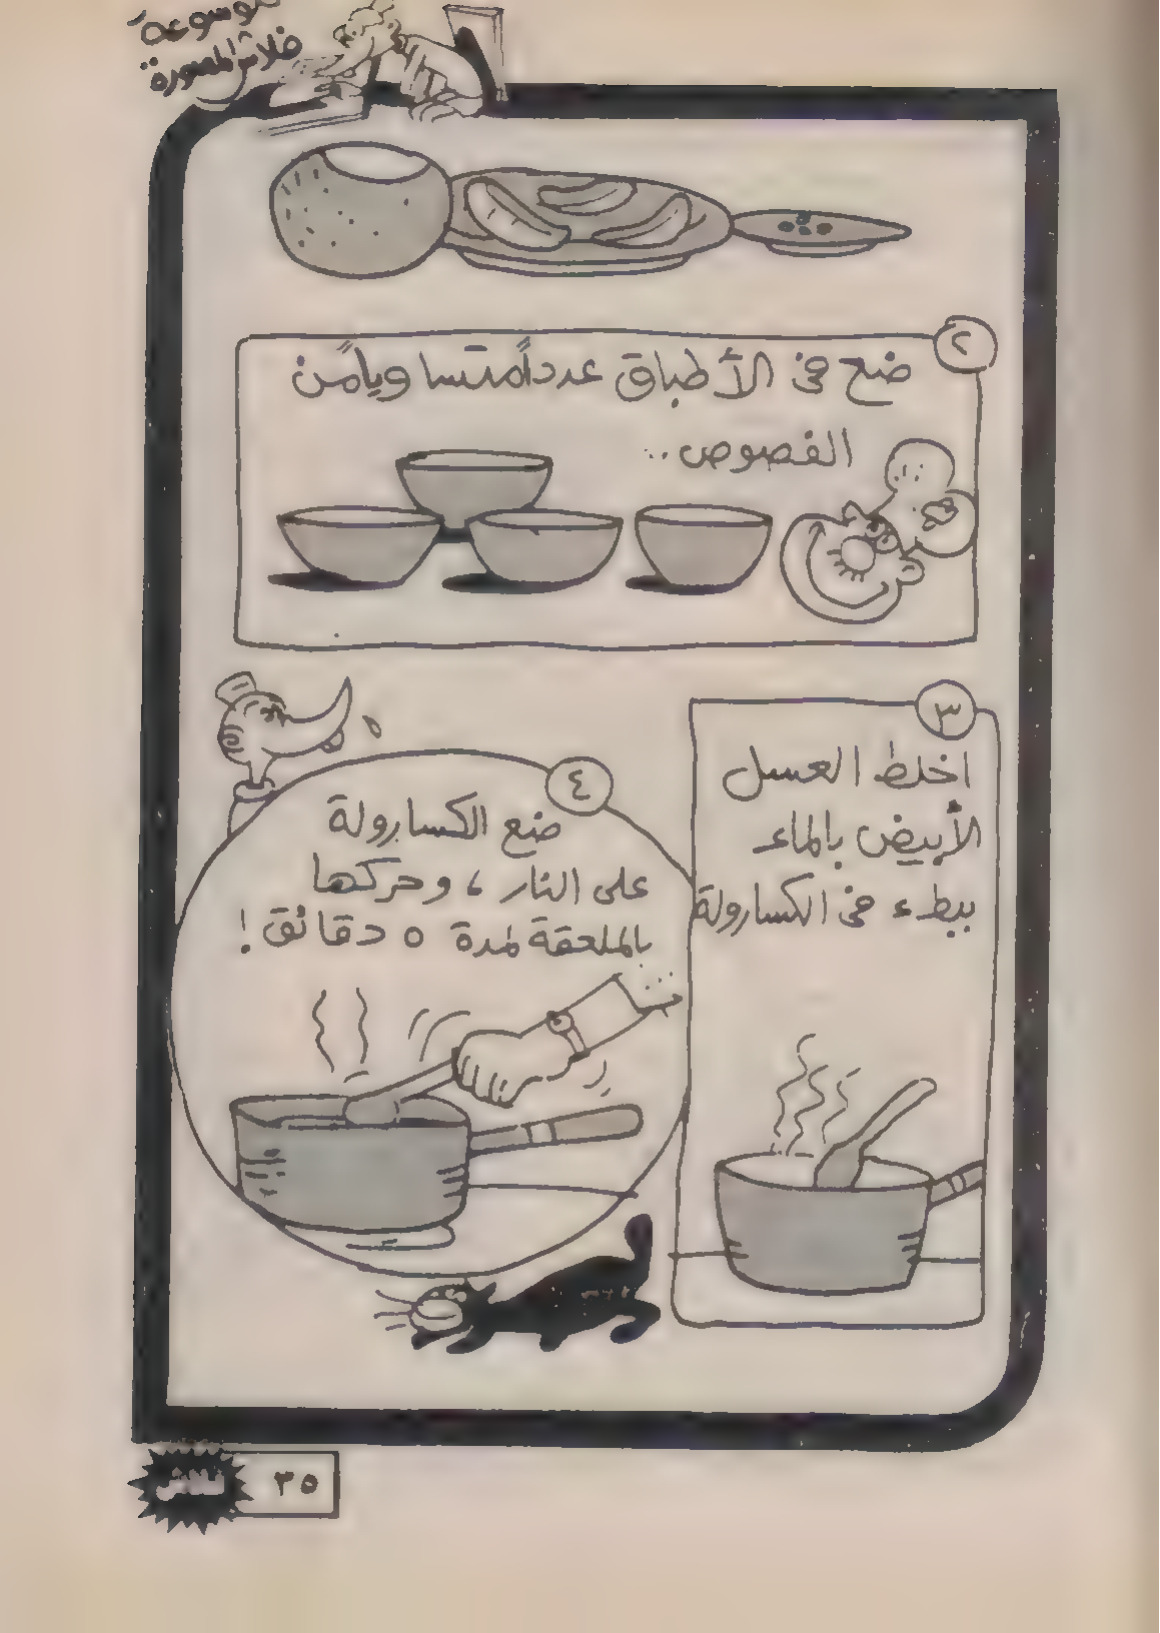 موسوعة
فلاش المصورة
٢
ضع فى الأطباق عدداً متساوياً من
الفصوص..
٣
اخلط العسل
الأبيض بالماء
ببطء فى الكسارولة
٤
ضع الكسارولة
على النار ، وحركها
بالملعقة لمدة ٥ دقائق !
فلاش
٣٥